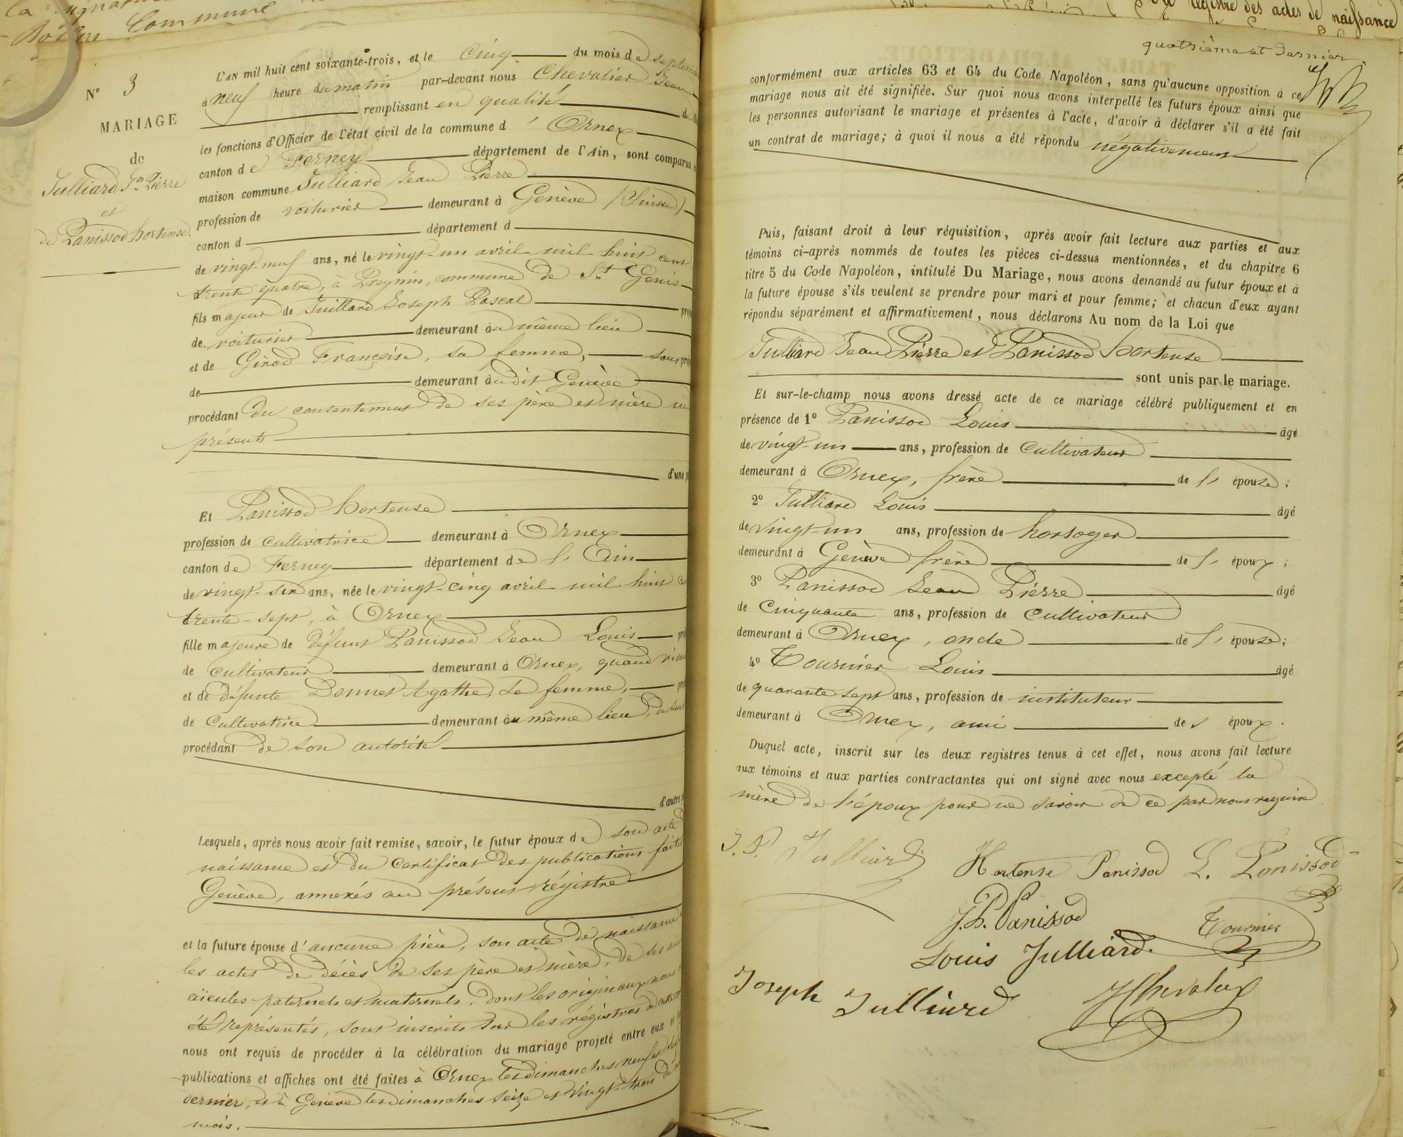 quatrième et dernier
N° 3
MARIAGE
de
Julliard Jn Pierre
et
de Panissod hortense
L'AN mil huit cent soixante-trois, et le cinq du mois de septembre
à neuf heure du matin par-devant nous Chevalier Jean
remplissant en qualité
les fonctions d'Officier de l'état civil de la commune d' Ornex
canton de Ferney département de l'Ain, sont comparus
maison commune Julliard Jean Pierre
profession de voiturier demeurant à Genève (Suisse)
canton d département d
de vingt-neuf ans, né le vingt-un avril mil huit cent
trente quatre, à Pregnin, commune de St Genis
fils majeur de Juillard Joseph Pascal
de voiturier demeurant au même lieu
et de Girod Françoise, sa femme, sans
de demeurant au dit Genève
procédant du consentement de ses père et mère
présents
d'une
Et Panissod hortense
profession de cultivatrice demeurant à Ornex
canton de Ferney département de l'Ain
de vingt-six ans, née le vingt-cinq avril mil huit
trente-sept, à Ornex
fille majeure de défunt Panissod Jean Louis
de cultivateur demeurant à Ornex, quand
et de défunte Donnet Agathe, sa femme,
de cultivatrice demeurant au même lieu,
procédant de son autorité
d'autre
Lesquels, après nous avoir fait remise, savoir, le futur époux de son acte
naissance et du certificat des publications faites
Genève, annexés au présent régistre
et la future épouse d'aucune pièce, son acte de naissance
les actes de décès de ses père et mère, de ses
aïeules paternels et maternels, dont les originaux nous
représentés, sont inscrits sur les régistres
nous ont requis de procéder à la célébration du mariage projeté entre eux
publications et affiches ont été faites à Ornex les dimanches neuf
dernier, et à Genève les dimanches seize et vingt-trois
mois.
conformément aux articles 63 et 64 du Code Napoléon, sans qu'aucune opposition à ce
mariage nous ait été signifiée. Sur quoi nous avons interpellé les futurs époux ainsi que
les personnes autorisant le mariage et présentes à l'acte, d'avoir à déclarer s'il a été fait
un contrat de mariage; à quoi il nous a été répondu négativement
Puis, faisant droit à leur réquisition, après avoir fait lecture aux parties et aux
témoins ci-après nommés de toutes les pièces ci-dessus mentionnées, et du chapitre 6
titre 5 du Code Napoléon, intitulé Du Mariage, nous avons demandé au futur époux et à
la future épouse s'ils veulent se prendre pour mari et pour femme; et chacun d'eux ayant
répondu séparément et affirmativement, nous déclarons Au nom de la Loi que
Julliard Jean Pierre et Panissod hortense
sont unis par le mariage.
Et sur-le-champ nous avons dressé acte de ce mariage célébré publiquement et en
présence de 1° Panissod Louis âgé
de vingt-un ans, profession de cultivateur
demeurant à Ornex, frère de l' épouse;
2° Julliard Louis âgé
de vingt-un ans, profession de horloger
demeurant à Genève frère de l' époux;
3° Panissod Jean Pierre âgé
de cinquante ans, profession de cultivateur
demeurant à Ornex, oncle de l' épouse;
4° Tournier Louis âgé
de quarante sept ans, profession de instituteur
demeurant à Ornex, ami des époux.
Duquel acte, inscrit sur les deux registres tenus à cet effet, nous avons fait lecture
aux témoins et aux parties contractantes qui ont signé avec nous excepté la
mère de l'époux pour ne savoir de ce par nous requise
J. P. Julliard Hortense Panissod L. Panissod
J. P. Panissod Tournier
Louis Julliard.
Joseph Julliard JChevalier